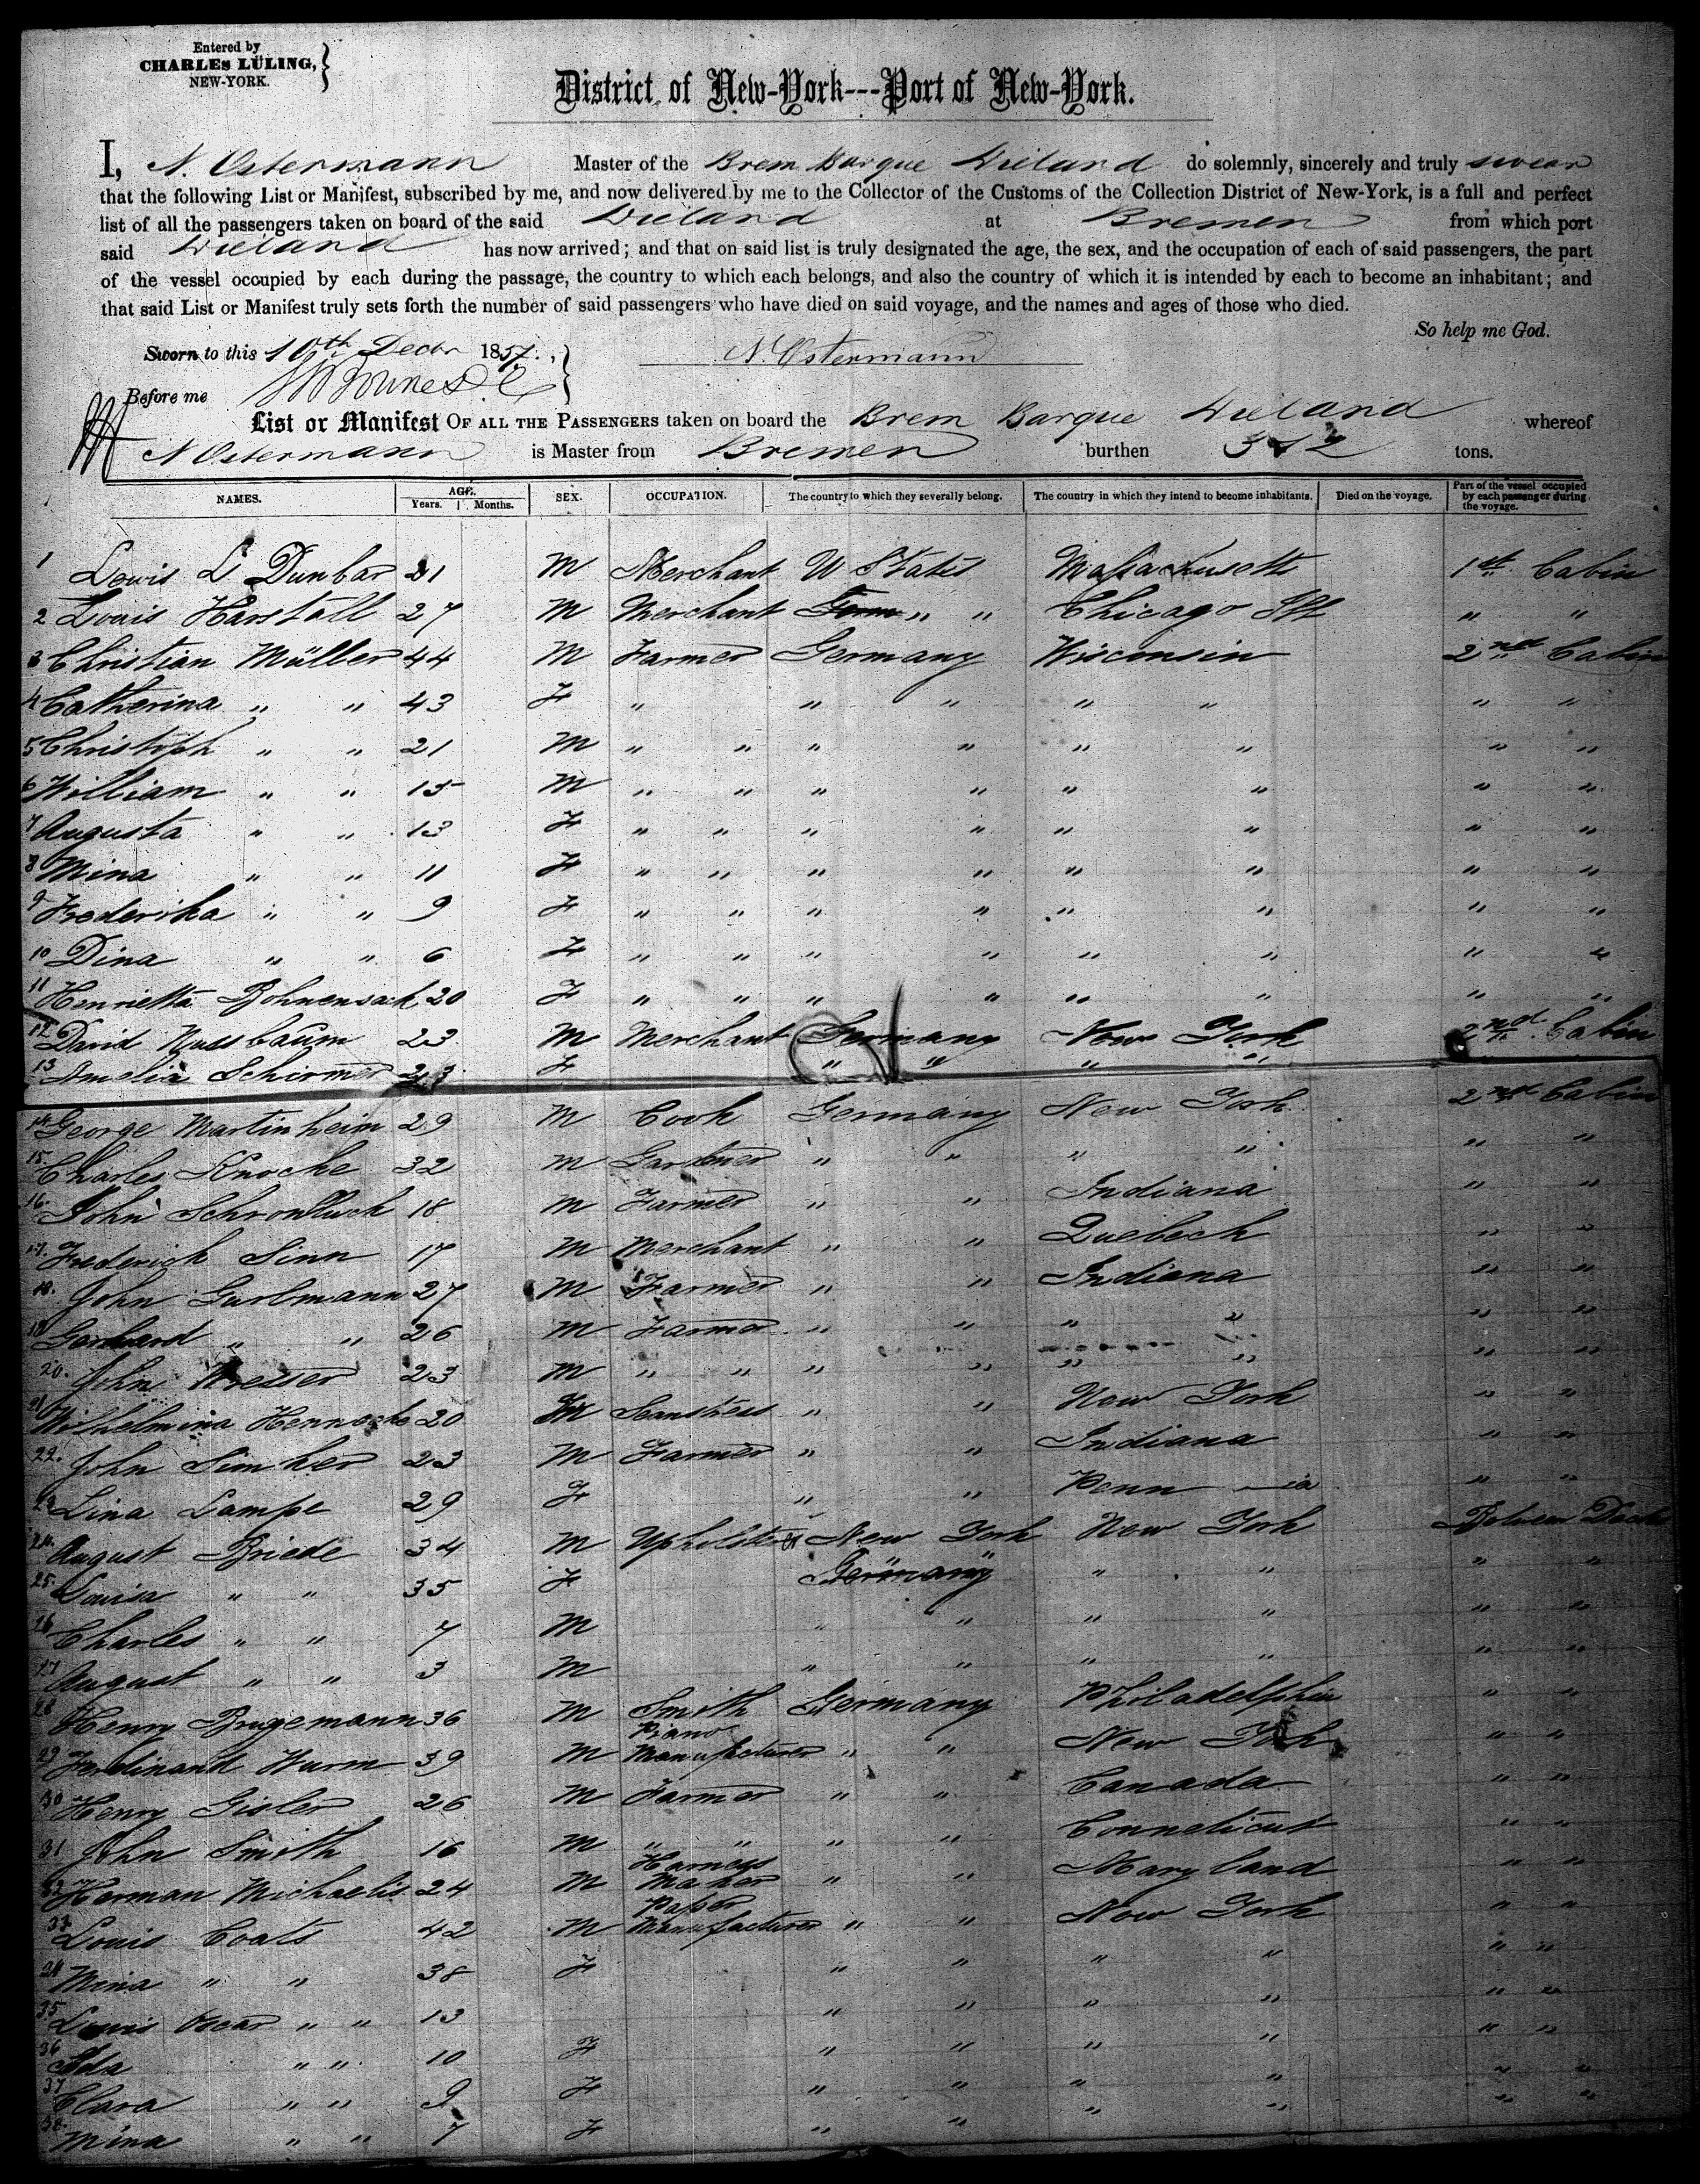 Entered by
CHARLES LÜLING,
NEW-YORK.
District of New-York---Port of New-York.
I, N. Ostermann Master of the Brem Barque Wieland do solemnly, sincerely and truly swear
that the following List or Manifest, subscribed by me, and now delivered by me to the Collector of the Customs of the Collection District of New-York, is a full and perfect
list of all the passengers taken on board of the said Wieland at Bremen from which port
said Wieland has now arrived; and that on said list is truly designated the age, the sex, and the occupation of each of said passengers, the part
of the vessel occupied by each during the passage, the country to which each belongs, and also the country of which it is intended by each to become an inhabitant; and
that said List or Manifest truly sets forth the number of said passengers who have died on said voyage, and the names and ages of those who died.
So help me God.
Sworn to this 10th Decbr 1857.
N. Ostermann
Before me
List or Manifest OF ALL THE PASSENGERS taken on board the Brem Barque Wieland whereof
N Ostermann is Master from Bremen burthen tons.
NAMES. AGE. Years. Months. SEX. OCCUPATION. The country to which they severally belong. The country in which they intend to become inhabitants. Died on the voyage. Part of the vessel occupied by each passenger during the voyage.
1 Lewis L Dunbar 21 M Merchant U States Massachusetts 1st Cabin
2 Louis Harstall 27 M Merchant Germ " " Chicago Ill " "
3 Christian Müller 44 M Farmer Germany Wisconsin 2nd Cabin
4 Catherina " " 43 F " " " " " " "
5 Christoph " " 21 M " " " " " " " "
6 William " " 15 M " " " " " " " "
7 Augusta " " 13 F " " " " " " " "
8 Mina " " 11 F " " " " " " " "
9 Frederika " " 9 F " " " " " " " "
10 Dina " " 6 F " " " " " " " "
11 Henrietta Bohnensack 20 F " " " " " " " "
12 David Nussbaum 23 M Merchant Germany New York 2nd Cabin
13 Amelia Schirmer 23 F " " " "
14 George Martinheim 29 M Cook Germany New York 2nd Cabin
15. Charles Knoche 32 M Gardener " " " " " "
16. John 18 M Farmer " " Indiana " "
17. Frederich Sinn 17 M Merchant " " Quebech " "
18. John Gurlmann 27 M Farmer " " Indiana " "
19 Gerhard " " 26 M Farmer " " " " " "
20. John 23 M " " " " " " " "
21 Wilhelmina 20 F Seamstress " " New York " "
22. John Simker 23 M Farmer " " Indiana " "
23 Lina Lampe 29 F " " Penn—ia " "
24. August Briede 34 M Upholsterer New York New York Between Decks
25. Louisa " " 35 F Germany " " " " " "
26 Charles " " 7 M " " " " " "
27 August " " 3 M " " " " " "
28 Henry Brugemann 36 M Smith Germany Philadelphia " "
29 Ferdinand Wurm 39 M Piano Manufacturer " " New York " "
30 Henry Gisler 26 M Farmer " " Canada " "
31 John Smith 16 M " " " " Conneticut " "
32 Herman Michaelis 24 M Harness Maker " " Maryland " "
33 Louis Coats 42 M Paper Manufacturer " " New York " "
34 Mina " " 38 F " " " " " "
35 Louis Oscar " " 13 " " " " " "
36 Ida " " 10 F " " " " " "
37 Clara " " 9 F " " " " " "
38. Mina " " 7 F " " " " " "